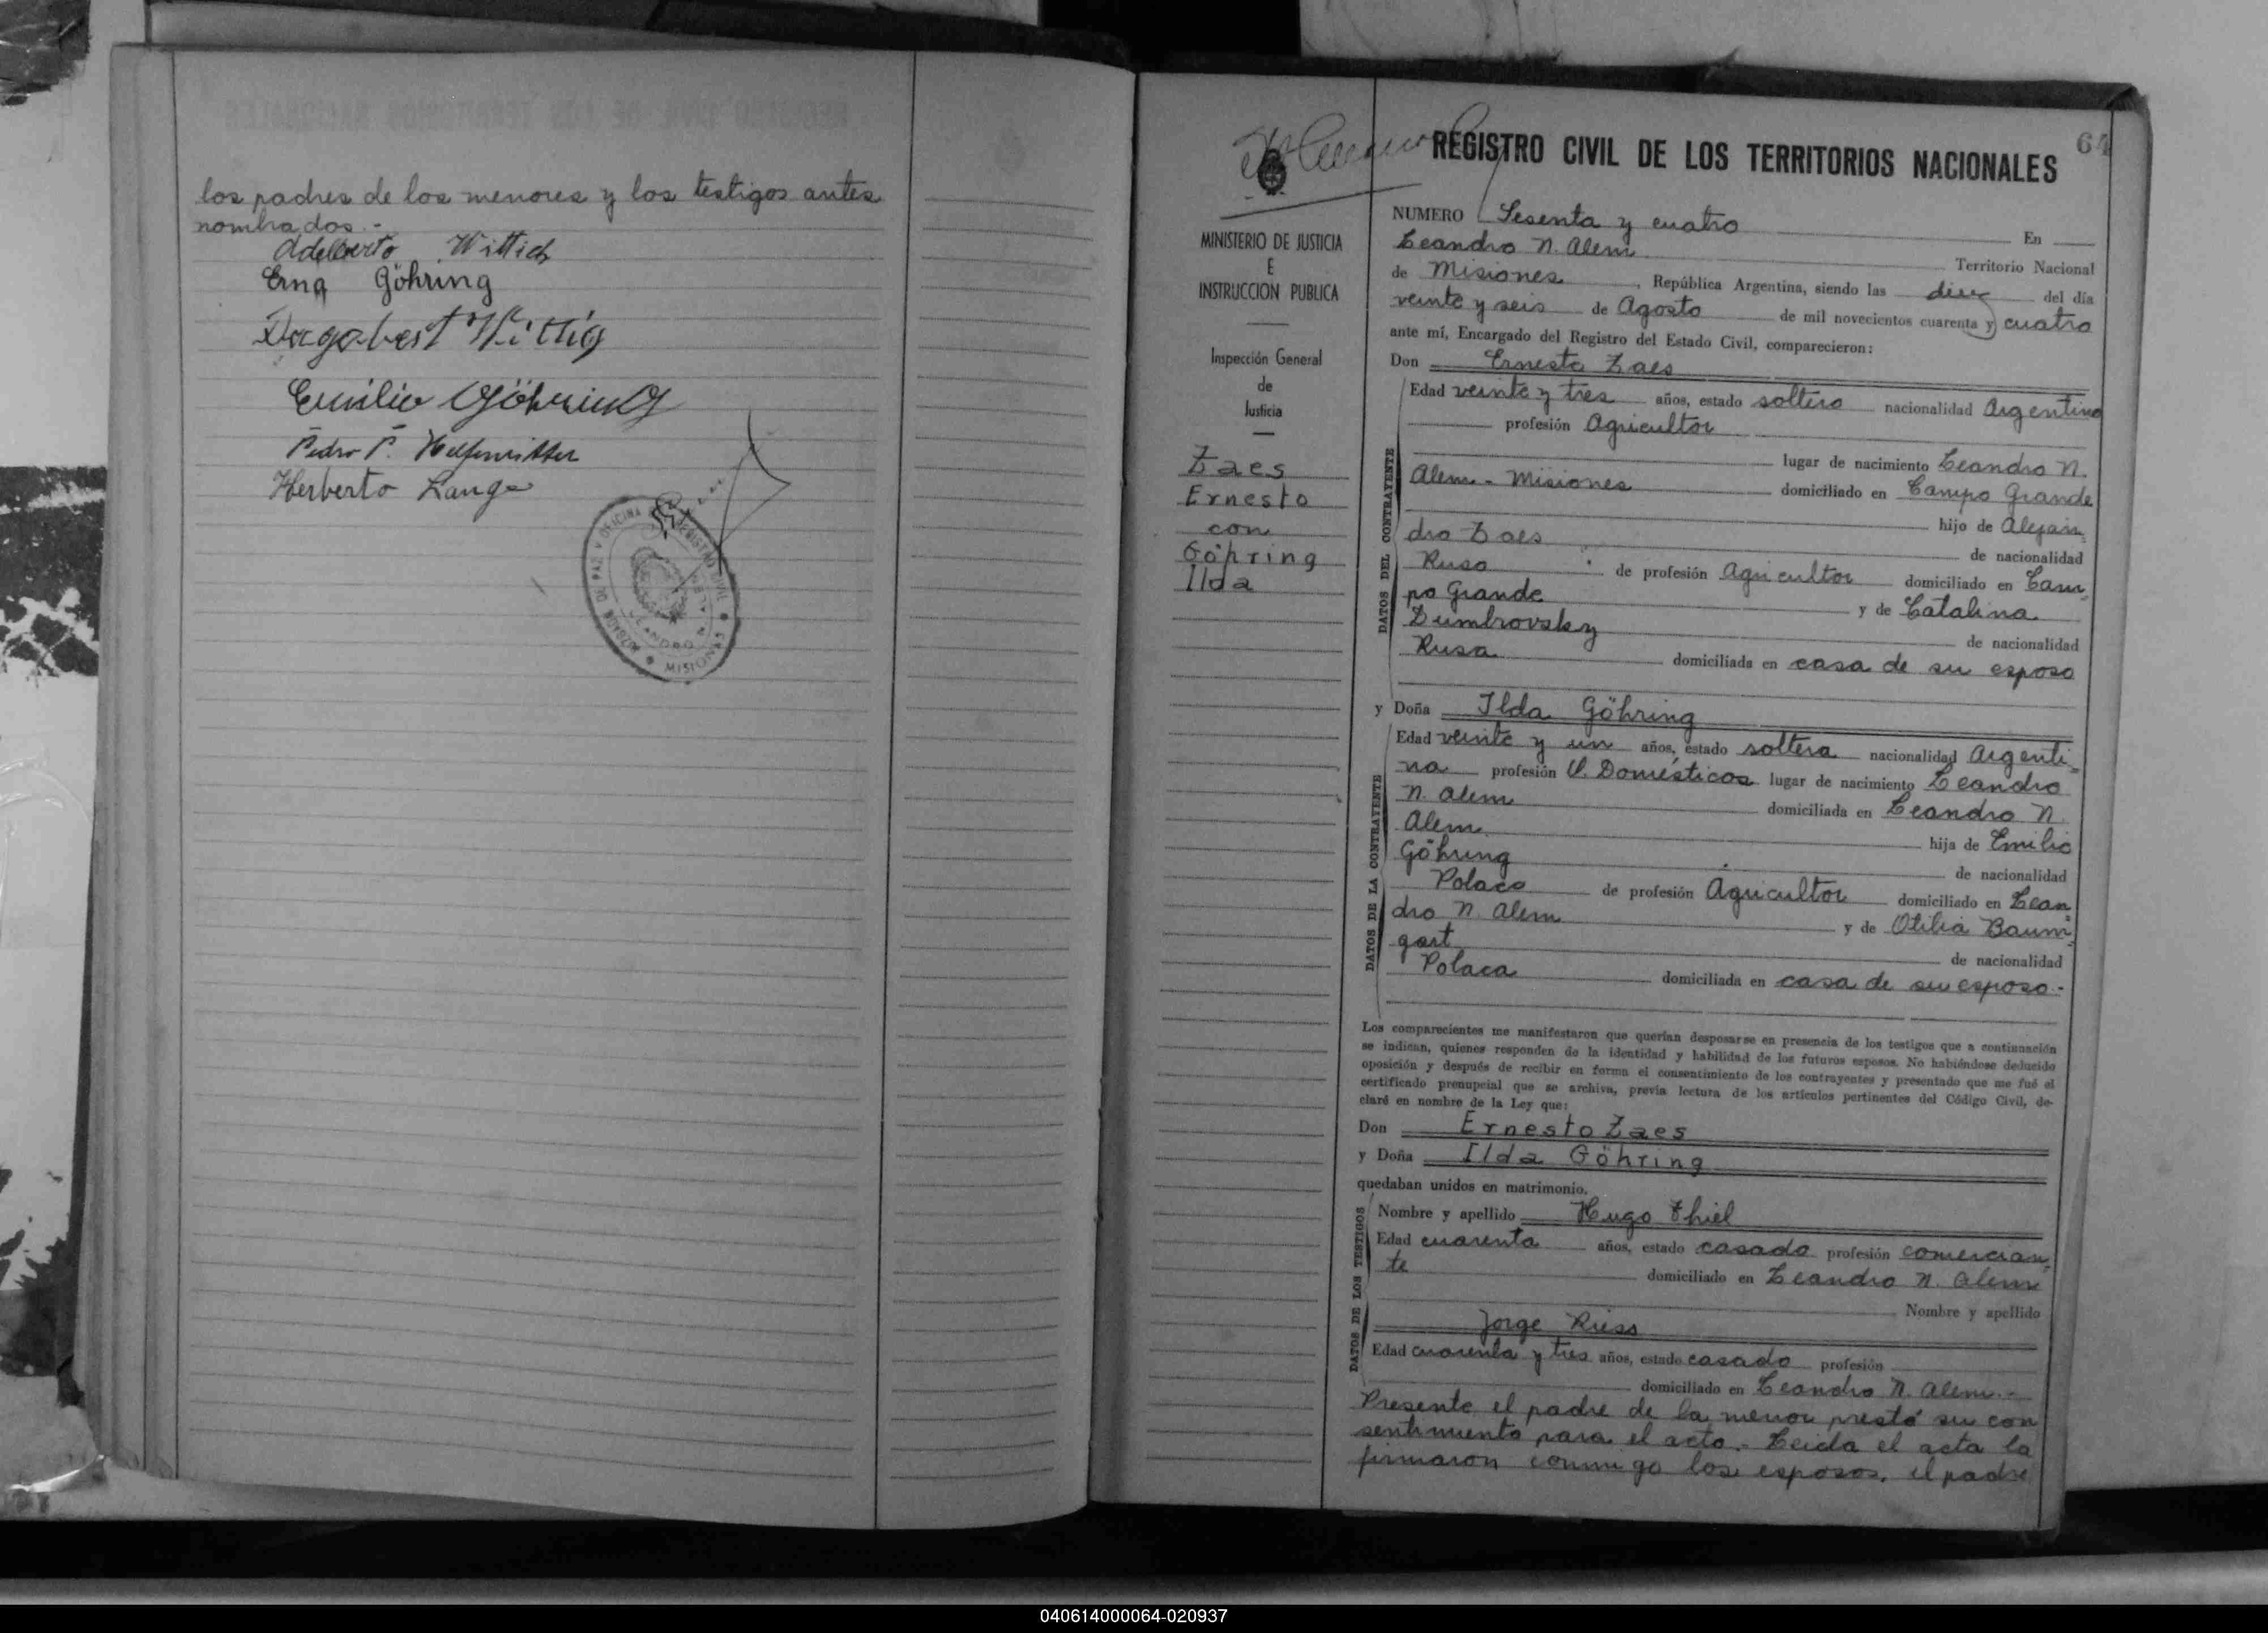 los padres de los menores y los testigos antes
nombrados.-
Adelberto Wittich
Erna Göhring
Dagobert Wittig
Emilio Göhring
Pedro P.
Herberto Lange
JUZGADO DE PAZ Y OFICINA REGISTRO CIVIL
LEANDRO N. ALEM
MISIONES
64
REGISTRO CIVIL DE LOS TERRITORIOS NACIONALES
MINISTERIO DE JUSTICIA
E
INSTRUCCION PUBLICA
Inspección General
de
Justicia
Zaes
Ernesto
con
Göhring
Ilda
NUMERO Sesenta y cuatro En
Leandro N. Alem Territorio Nacional
de Misiones, República Argentina, siendo las diez del día
veinte y seis de Agosto de mil novecientos cuarenta y cuatro
ante mí, Encargado del Registro del Estado Civil, comparecieron:
Don Ernesto Zaes
DATOS DEL CONTRAYENTE
Edad veinte y tres años, estado soltero nacionalidad Argentino
profesión Agricultor
lugar de nacimiento Leandro N.
Alem - Misiones domiciliado en Campo Grande
hijo de Alejan=
dro Zaes de nacionalidad
Ruso de profesión Agricultor domiciliado en Cam=
po Grande y de Catalina
Dumbrovsky de nacionalidad
Rusa domiciliada en casa de su esposo
y Doña Ilda Göhring
DATOS DE LA CONTRAYENTE
Edad veinte y un años, estado soltera nacionalidad Argenti=
na profesión Q. Domésticos lugar de nacimiento Leandro
N. Alem domiciliada en Leandro N.
Alem hija de Emilio
Göhring de nacionalidad
Polaco de profesión Agricultor domiciliado en Lean=
dro N. Alem y de Otilia Baum=
gart de nacionalidad
Polaca domiciliada en casa de su esposo.-
Los comparecientes me manifestaron que querían desposarse en presencia de los testigos que a continuación
se indican, quienes responden de la identidad y habilidad de los futuros esposos. No habiéndose deducido
oposición y después de recibir en forma el consentimiento de los contrayentes y presentado que me fué el
certificado prenupcial que se archiva, previa lectura de los artículos pertinentes del Código Civil, de-
claré en nombre de la Ley que:
Don Ernesto Zaes
y Doña Ilda Göhring
quedaban unidos en matrimonio.
DATOS DE LOS TESTIGOS
Nombre y apellido Hugo Thiel
Edad cuarenta años, estado casado profesión comercian=
te domiciliado en Leandro N. Alem
Nombre y apellido
Jorge Riess
Edad cuarenta y tres años, estado casado profesión
domiciliado en Leandro N. Alem.-
Presente el padre de la menor prestó su con
sentimiento para el acto.- Leida el acta la
firmaron conmigo los esposos, el padre
040614000064-020937